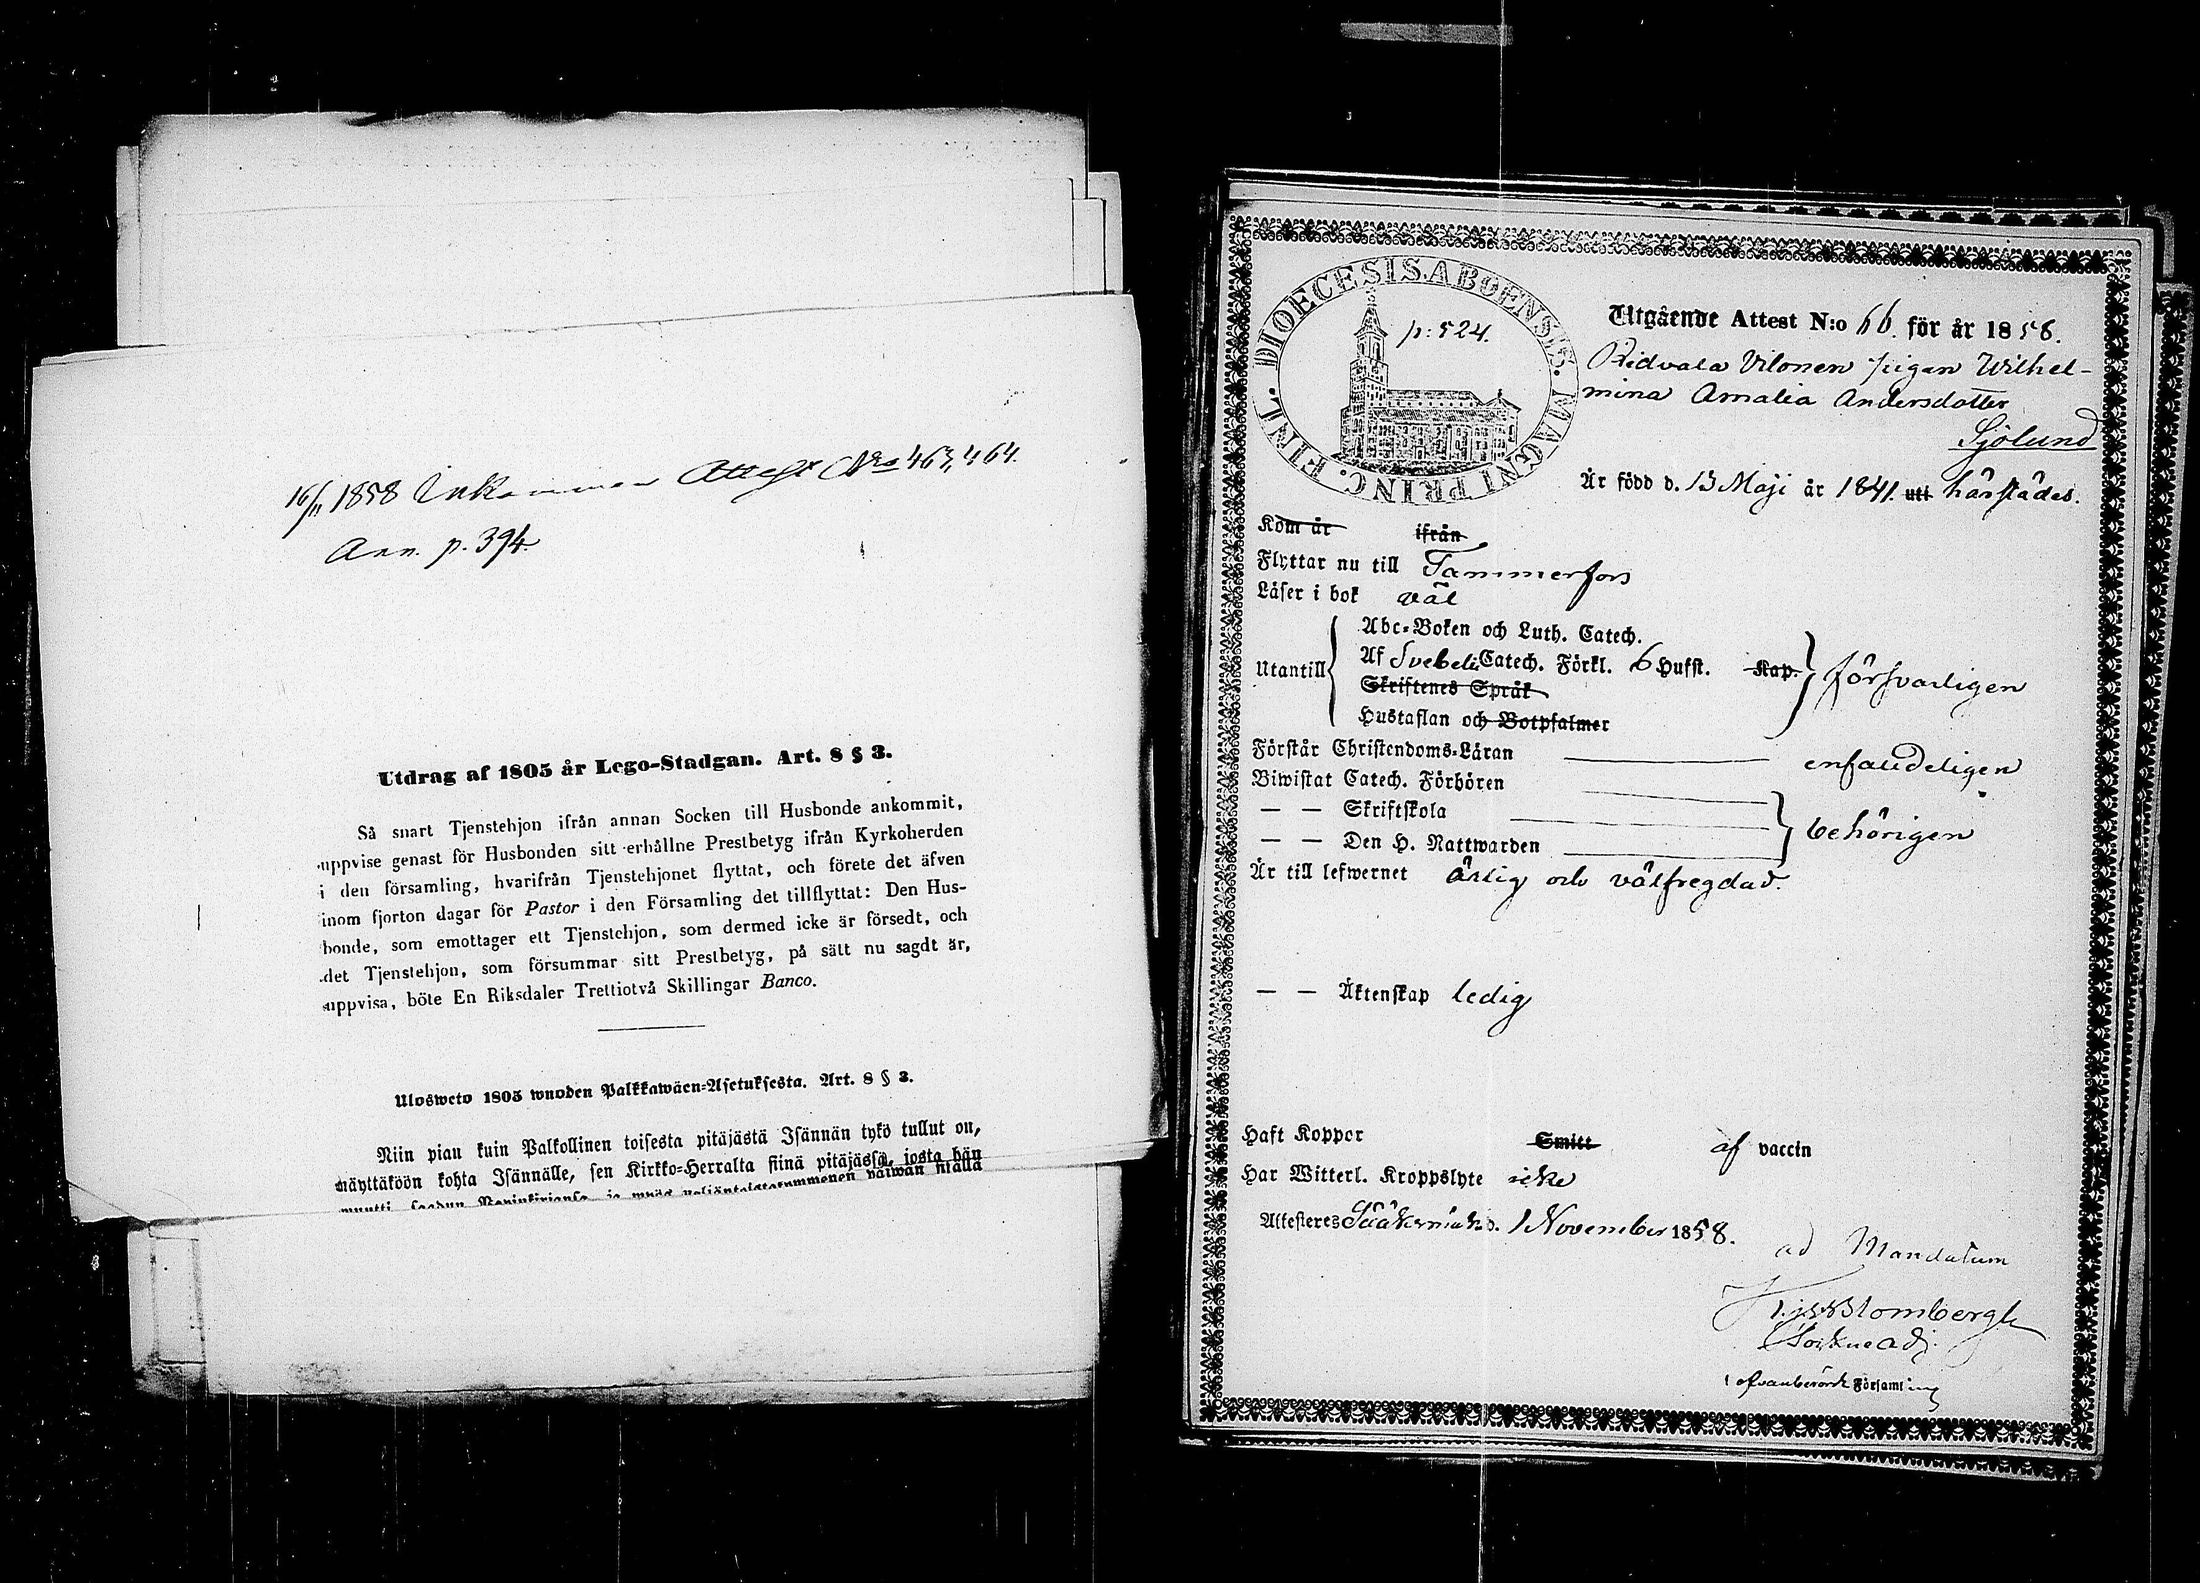 16/11 1858 Inkommen Attest Nro 463, 464.
Ann. p. 394.
Utdrag af 1805 år Lego-Stadgan. Art. 8 § 3.
Så snart Tjenstehjon ifrån annan Socken till Husbonde ankommit,
uppvise genast för Husbonden sitt erhållne Prestbetyg ifrån Kyrkoherden
i den församling, hvarifrån Tjenstehjonet flyttat, och förete det äfven
inom fjorton dagar för Pastor i den Församling det tillflyttat: Den Hus-
bonde, som emottager ett Tjenstehjon, som dermed icke är försedt, och
det Tjenstehjon, som försummar sitt Prestbetyg, på sätt nu sagdt är,
uppvisa, böte En Riksdaler Trettiotvå Skillingar Banco.
Ulosweto 1805 wuoden Palkkawäen-Asetuksesta. Art. 8 § 3.
Niin pian kuin Palkollinen toisesta pitäjästä Isännän tykö tullut on,
näyttäköön kohta Isännälle, sen Kirkko-Herralta siinä pitäjässä, josta hän
DIOECESIS. ABOENSIS. MAGNI PRINC. FINL.
p: 524.
Utgående Attest N:o 66. för år 1858.
Ridvala Vilonen pigan Wilhel-
mina Amalia Andersdotter
Sjölund
Är född d. 13 Maji år 1841. uti härstädes.
Kom år ifrån
Flyttar nu till Tammerfors
Läser i bok väl
Utantill
Abc-Boken och Luth. Catech.
Af Svebelii Catech. Förkl. 6 Hufst. Kap. försvarligen
Skriftenes Språk
Hustaflan och Botpsalmer
Förstår Christendoms-Läran enfaldeligen
Biwistat Catech. Förhören
— — Skriftskola
behörigen
— — Den H. Nattwarden
Är till lefwernet ärlig och välfregdad.
— — Äktenskap ledig
Haft Koppor Smitt af vaccin
Har Witterl. Kroppslyte icke
Attesteres Sääksmäki d. 1 November 1858.
ad Mandatum
Blombergh
Sockneadj.
i ofvanberörde Församling